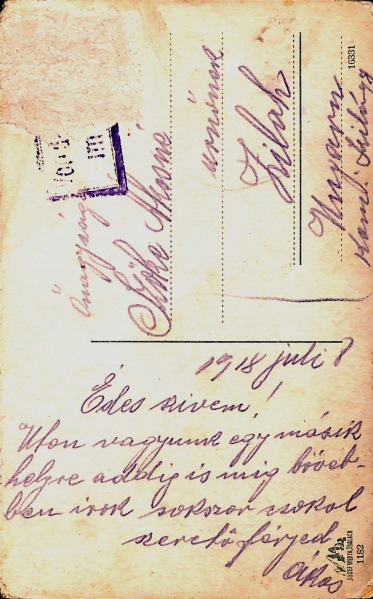 Őnagysága
Kőke Ákosné
urnőnek
Zilah
Ungarn
16331
1918 juli 8
Édes szivem!
Uton vagyunk egy másik
helyre addig is mig bőveb-
ben irok sokszor csokol
szerető férjed
Ákos
1182